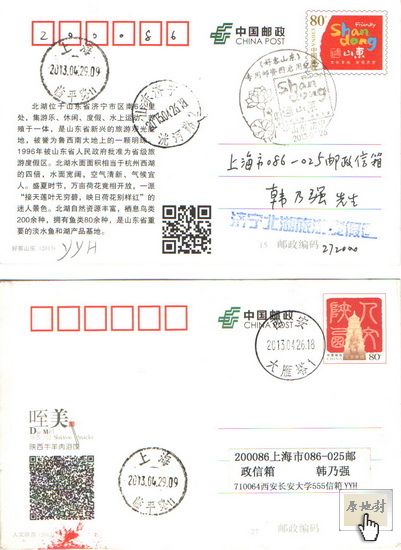 200086
中国邮政
CHINA POST
80
Friendly
Shandong
山东
上海
2013.04.29.09
临平路11
2013.04.26.18
北湖位于山东省济宁市区南5公里
处，集游乐、休闲、度假、水上运动
殖于一体，是山东省新兴的旅游观光胜
地，被誉为鲁西南大地上的一颗明珠。
1996年被山东省人民政府批准为省级旅
游度假区。北湖水面面积相当于杭州西湖
的四倍，水面宽阔，空气清新，气候宜
人。盛夏时节，万亩荷花竞相开放，一派
“接天莲叶无穷碧，映日荷花别样红”的
迷人景色。北湖自然资源丰富，栖息鸟类
200余种，拥有鱼类80余种，是山东省重
要的淡水鱼和湖产品基地。
上海市086-025邮政信箱
韩乃强先生
济宁北湖旅游度假区
好客山东 (2013)
YYH
15 邮政编码
272000
中国邮政
CHINA POST
西安
2013.04.26.18
大雁塔1
人文陕西
80
咥美
陕西牛羊肉泡馍
上海
2013.04.29.09
临平路11
200086上海市086-025邮
政信箱 韩乃强
710064西安长安大学555信箱YYH
27 邮政编码
原地封